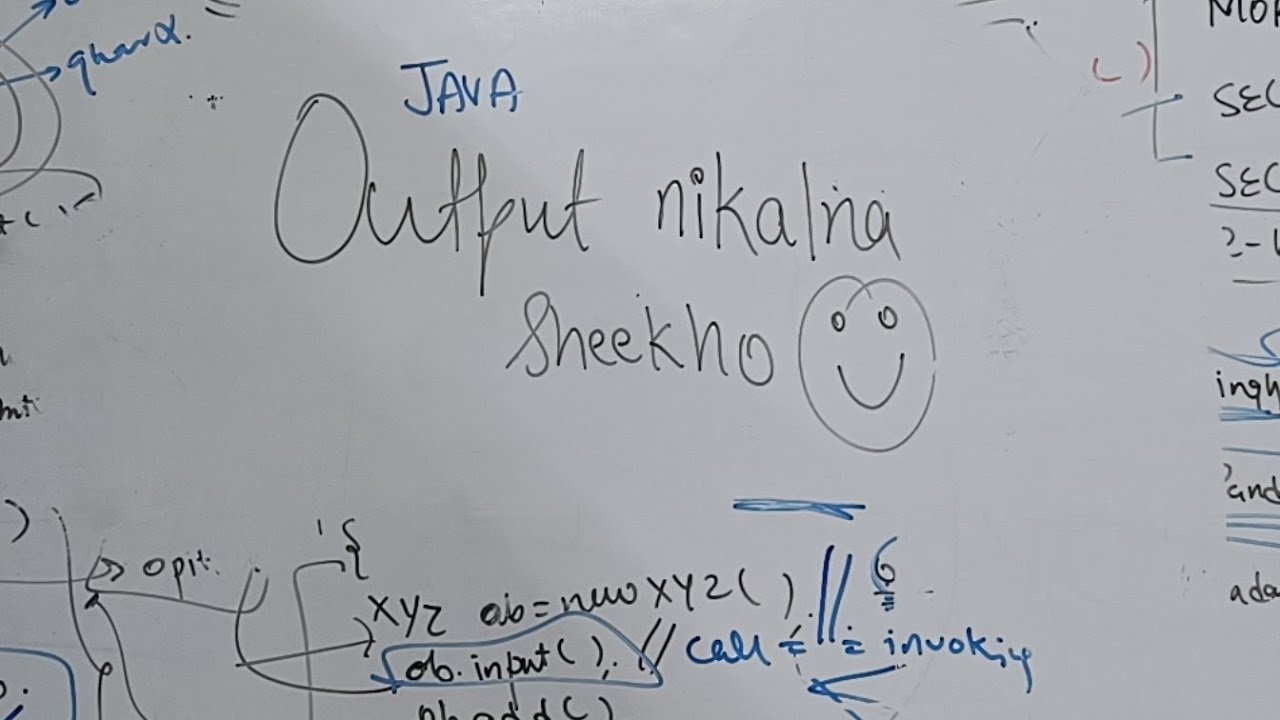 JAVA
Output nikalna
Sheekho
MOR
SEC
SEC
2-
ingh
and
ada
opit.
{
XYZ ob=new XYZ( ). // 6
ob.input( ); // call = = invoking
ob.add( )